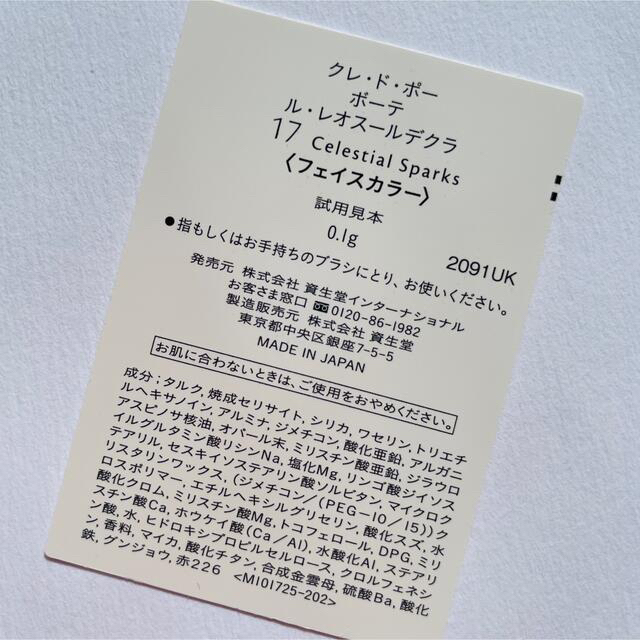 クレ・ド・ポー
ボーテ
ル・レオスールデクラ
17 Celestial Sparks
〈フェイスカラー〉
試用見本
0.1g
2091UK
●指もしくはお手持ちのブラシにとり、お使いください。
発売元 株式会社 資生堂インターナショナル
お客さま窓口 ☎0120-86-1982
製造販売元 株式会社 資生堂
東京都中央区銀座7-5-5
MADE IN JAPAN
お肌に合わないときは、ご使用をおやめください。
成分；タルク, 焼成セリサイト, シリカ, ワセリン, トリエチ
ルヘキサノイン, アルミナ, ジメチコン, 酸化亜鉛, アルガニ
アスピノサ核油, オパール末, ミリスチン酸亜鉛, ジラウロ
イルグルタミン酸リシンNa, 塩化Mg, リンゴ酸ジイソス
テアリル, セスキイソステアリン酸ソルビタン, マイクロク
リスタリンワックス, (ジメチコン/(PEG-10/15))ク
ロスポリマー, エチルヘキシルグリセリン, 酸化スズ, 水
酸化クロム, ミリスチン酸Mg, トコフェロール, DPG, ミリ
スチン酸Ca, ホウケイ酸(Ca/Al), 水酸化Al, ステアリ
ン酸, 水, ヒドロキシプロピルセルロース, クロルフェネシ
ン, 香料, マイカ, 酸化チタン, 合成金雲母, 硫酸Ba, 酸化
鉄, グンジョウ, 赤226 <M101725-202>